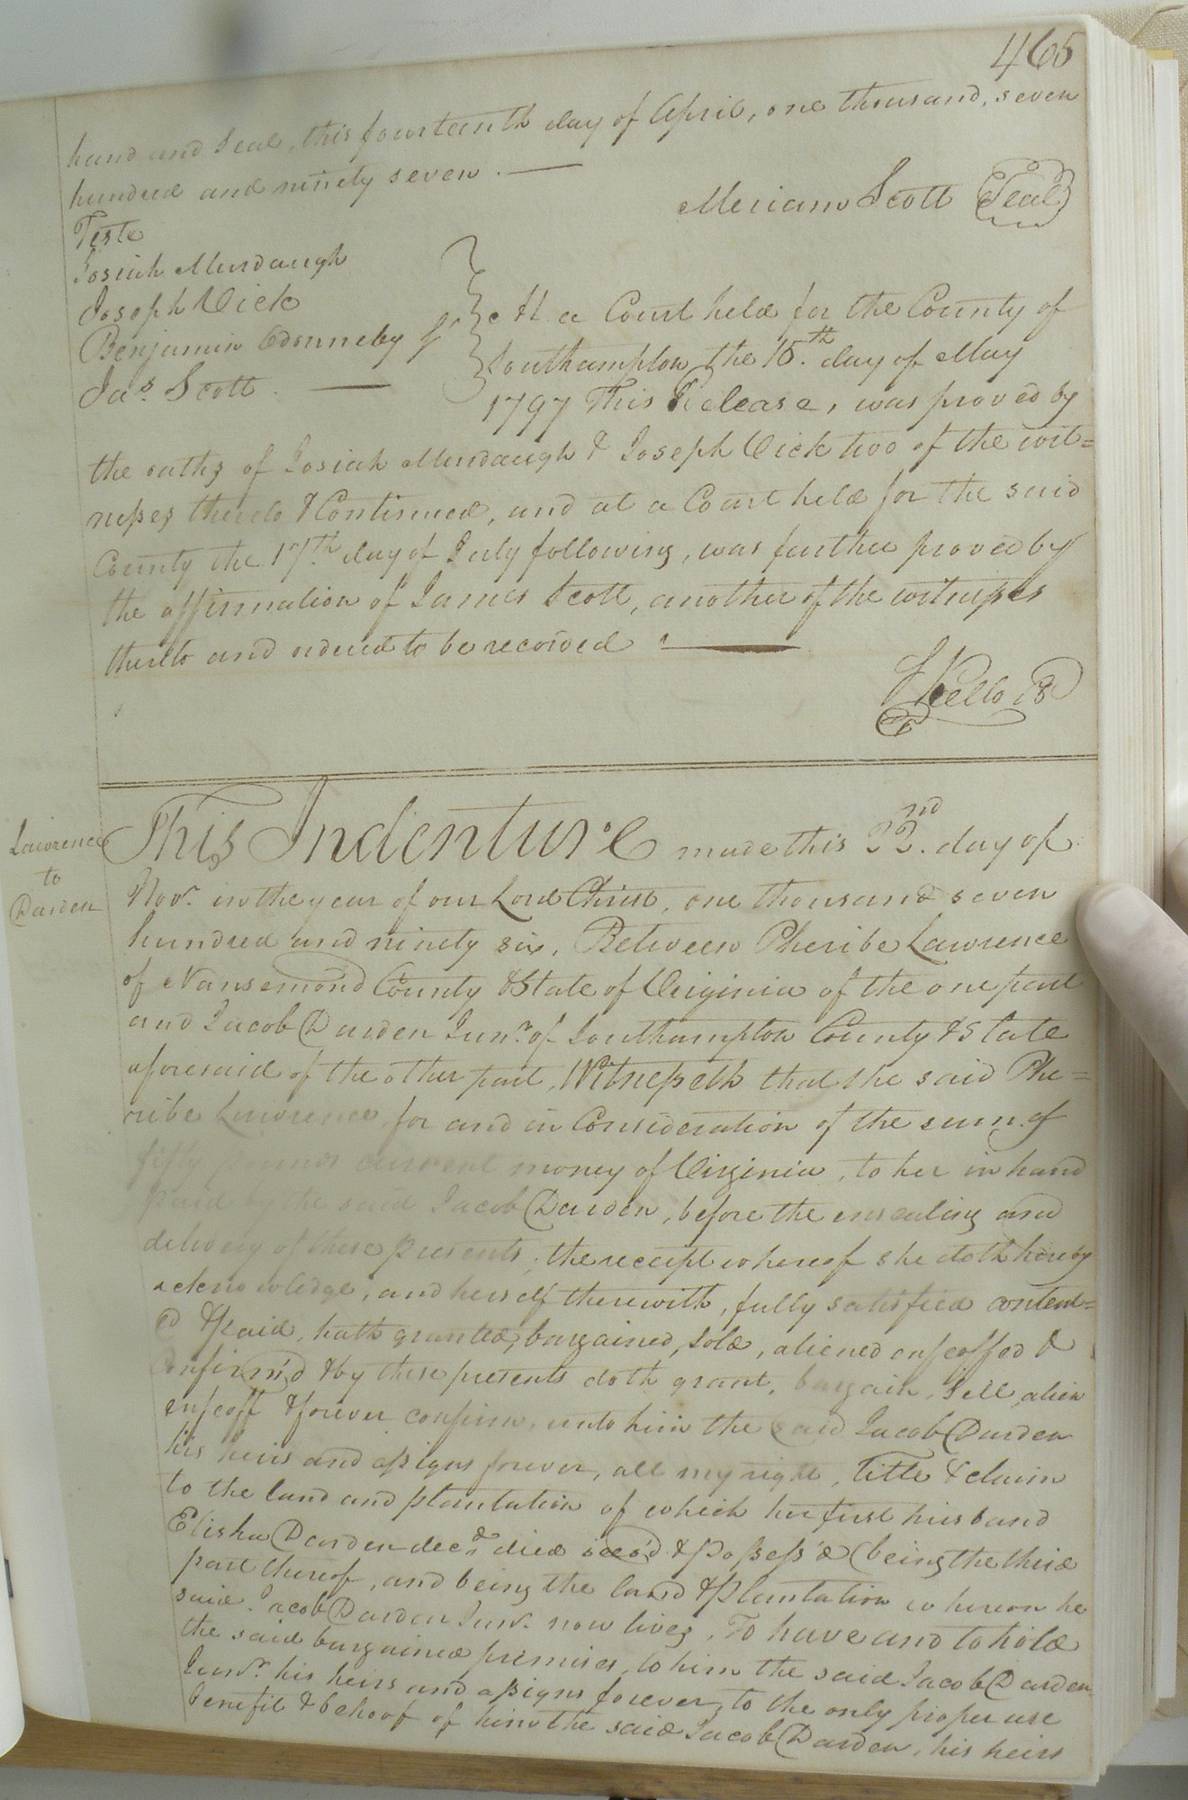 465
hand and Seal, this fourteenth day of April, one thousand, seven
hundred and ninety seven.
Meriam Scott Seal
Teste
Josiah Murdaugh
Joseph Vick
Benjamin
Jas. Scott.
At a Court held for the County of
Southampton the 15.th day of May
1797 This Release, was proved by
the oaths of Josiah Murdaugh & Joseph Vick two of the wit=
nesses thereto & Continued, and at a Court held for the said
County the 17.th day of July following, was further proved by
the affirmation of James Scott, another of the witnesses
thereto and ordered to be recorded
Kello
Lawrence
to
Darden
This Indenture made this 22.nd day of
Novr. in the year of our Lord Christ, one thousand seven
hundred and ninety six, Between Pheribe Lawrence
of Nansemond County & State of Virginia of the one part
and Jacob Darden Junr. of Southampton County & State
aforesaid of the other part, Witnesseth that the said Phe=
ribe Lawrence for and in Consideration of the sum of
fifty pounds current money of Virginia, to her in hand
paid by the said Jacob Darden, before the ensealing and
delivery of these presents, the receipt whereof she doth hereby
acknowledge, and herself therewith, fully satisfied content=
ed & paid, hath granted, bargained, sold, aliened enfeoffed &
Confirm'd & by these presents doth grant, bargain, sell, alien
enfeoff & forever confirm, unto him the said Jacob Darden
his heirs and assigns forever, all my right, title & claim
to the land and plantation of which her first husband
Elisha Darden decd. died seo'd & possess'd (being the third
part thereof, and being the land & plantation whereon he
said Jacob Darden Junr. now lives, To have and to hold
the said bargained premises, to him the said Jacob Darden
Junr. his heirs and assigns forever, to the only proper use
benefit & behoof of him the said Jacob Darden, his heirs